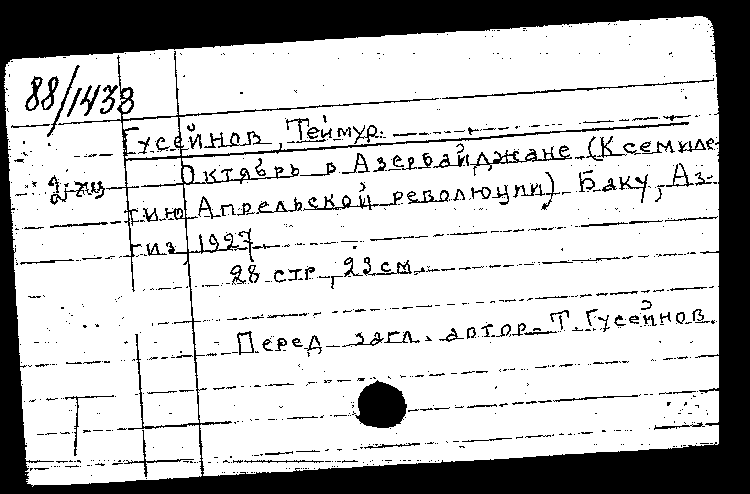 88/1433
Гусейнов, Теймур.
Октябрь в Азербайджане (К семиле-
тию Апрельской революции) Баку, Аз-
гиз, 1927.
28 стр, 23 см.
Перед загл. автор - Т. Гусейнов.